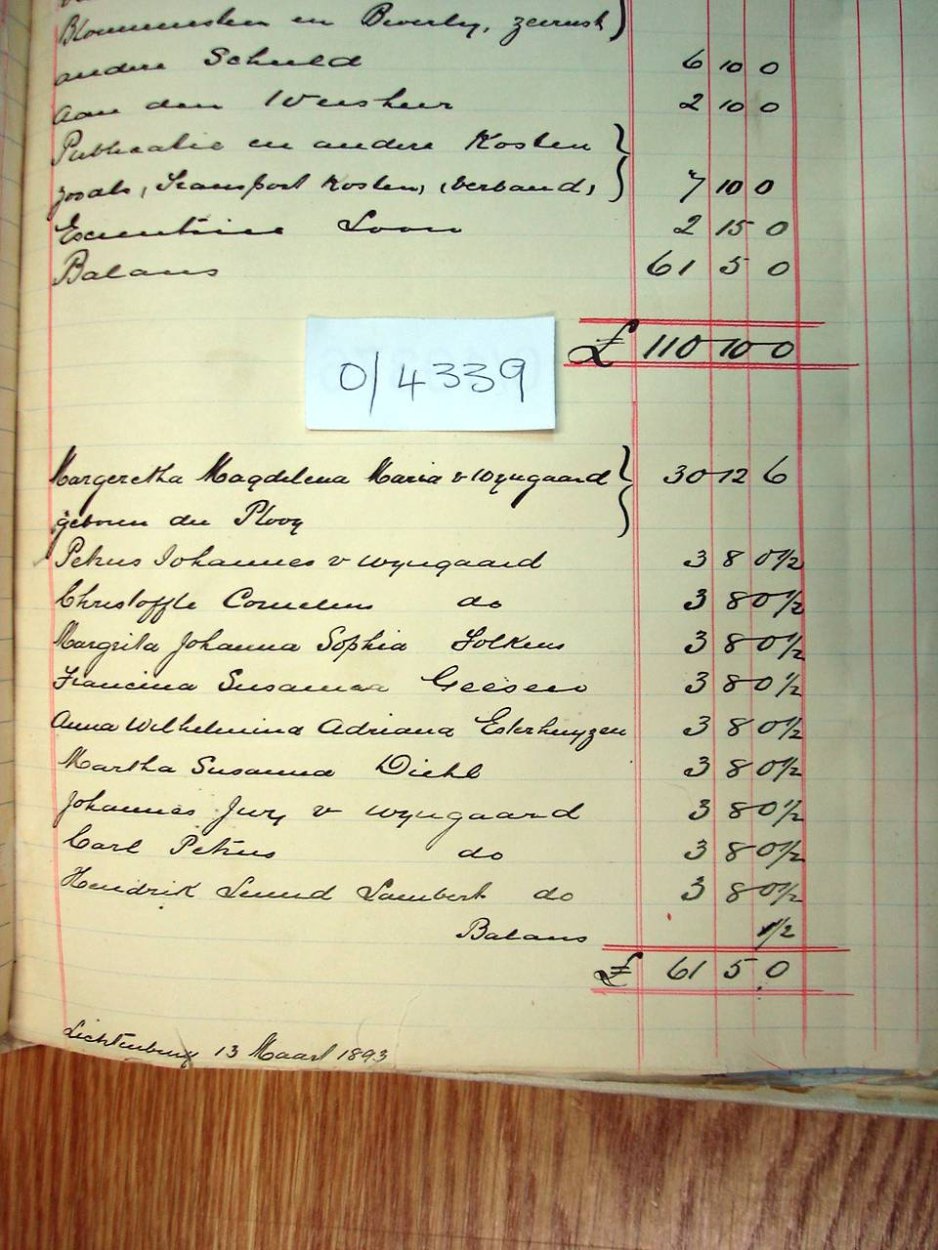 Blommestein en Beverly, zeerust)
andere Schuld 6 10 0
aan den Weesheer 2 10 0
Publicatie en andere Kosten }
zoals, Transport kosten, (verband,) } 7 10 0
Executrice Loon 2 15 0
Balans 61 5 0
£ 110 10 0
0/4339
Margeretha Magdelena Maria v Wyngaard } 30 12 6
geboren du Plooy
Petrus Johannes v Wyngaard 3 8 0½
Christoffle Cornelius do 3 8 0½
Margrita Johanna Sophia Folkens 3 8 0½
Francina Susanna Geesen 3 8 0½
Anna Wilhelmina Adriana Esterhuyzen 3 8 0½
Martha Susanna Diehl 3 8 0½
Johannes Jury v Wyngaard 3 8 0½
Carl Petrus do 3 8 0½
Hendrik Lambert do 3 8 0½
Balans ½
£ 61 5 0
Lichtenburg 13 Maart 1893